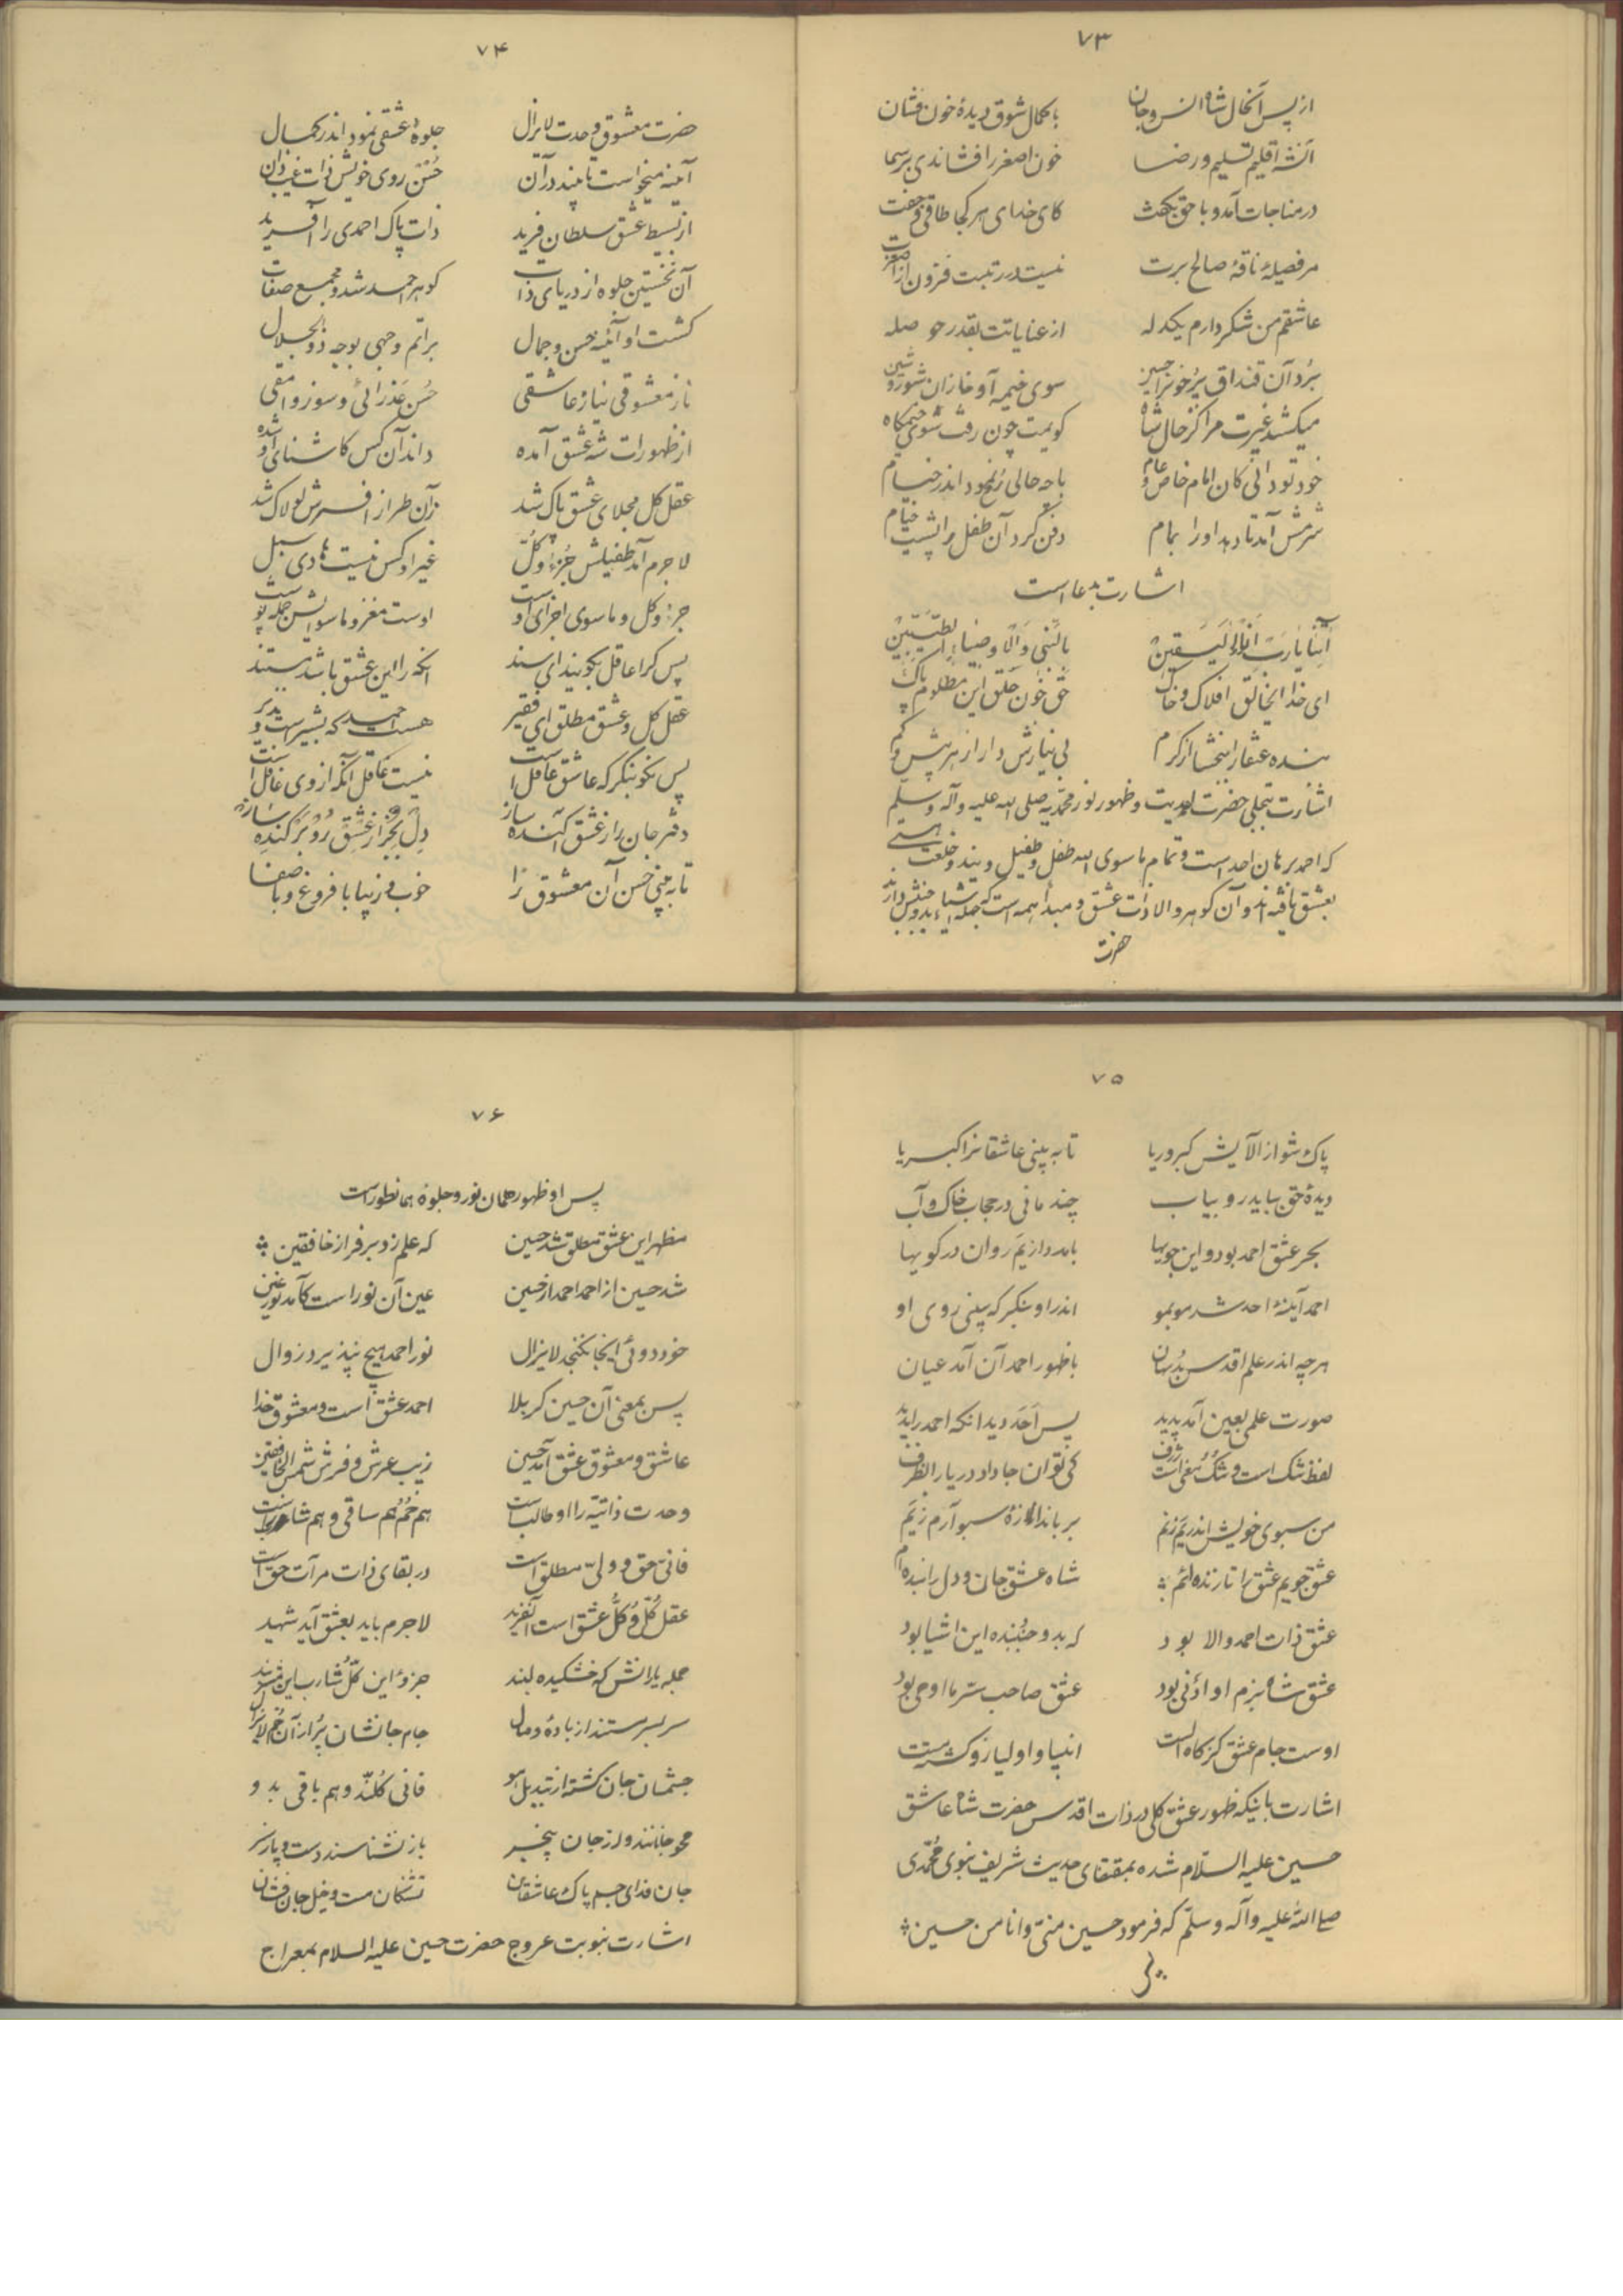 ۷۳
از پس آنحال شاه انس و جان با کمال شوق دیدهٔ خون فشان
آنشه اقلیم تسلیم و رضا خون اصغر را فشاندی بر سما
در مناجات آمد و با حق بگفت کای خدای هر کجا طاقی و جفت
مر فصیلهٔ ناقهٔ صالح برت نیست در رتبت فزون از اصغرت
عاشقم من شکر دارم یکدله از عنایاتت بقدر حوصله
برد آن قنداق پر خون را حسین سوی خیمه آوخ از آن شور و شین
میکشد غیرت مرا کز حال شاه گویمت چون رفت سوی خیمه‌گاه
خود تو دانی کان امام خاص و عام با چه حالی رخ نمود اندر خیام
شرمش آمد تا دهد او را بمام دفن کرد آن طفل را پشت خیام
اشارت بدعا است
آتنا یا رب انوار الیقین بالنبی و الاوصیاء الطیبین
ای خدا ای خالق افلاک و خاک حق خون حلق این مظلوم پاک
بنده عنقا را ببخشا از کرم بی‌نیازش دار از هر بیش و کم
اشارت بتجلی حضرت احدیت و ظهور نور محمدیه صلی الله علیه و آله و سلم
که احمد برهان احد است و تمام ما سوی الله طفل و طفیل ویند و خلعت هستی
بعشق یافته‌اند و آن گوهر والا ذات عشق و مبدأ همه است که جمله اشیاء بدو جنبش دارند
حضرت
۷۴
حضرت معشوق وحدت لایزال جلوهٔ عشقی نمود اندر کمال
آینه میخواست تا بیند در آن حسن روی خویش ذات غیب دان
از بسیط عشق سلطان فرید ذات پاک احمدی را آفرید
آن نخستین جلوه از دریای ذات گوهر احمد شد و مجمع صفات
گشت او آئینه حسن و جمال بر اتم وجهی بوجه ذوالجلال
ناز معشوقی نیاز عاشقی حسن عذرائی و سوز وامقی
از ظهورات شه عشق آمده داند آن کس کاشنای او شده
عقل کل مجلای عشق پاک شد زآن طراز افسرش لولاک شد
لاجرم آمد طفیلش جزء و کل غیر او کس نیست هادی سبل
جزء و کل و ما سوی اجزای اوست اوست مغز و ما سوایش جمله پوست
پس کرا عاقل بگویند ای سند آنکه را این عشق باشد مستند
عقل کل و عشق مطلق ای فقیر هست احمد که بشیر است و نذیر
پس نکو بنگر که عاشق عاقل است نیست عاقل آنکه از وی غافل است
دفتر جان را ز عشق آکنده ساز دل بجز از عشق رو برکنده ساز
تا به بینی حسن آن معشوق را خوب و زیبا با فروغ و با صفا
۷۵
پاک شو از آلایش کبر و ریا تا به بینی عاشقانرا کبریا
دیدهٔ حق بباید رو بیاب چند مانی در حجاب خاک و آب
بحر عشق احمد بود و این جویها بامداد از یم روان در کویها
احمد آینهٔ احد شد مو بمو اندر او بنگر که بینی روی او
هرچه اندر علم اقدس بد نهان با ظهور احمد آن آمد عیان
صورت علمی بعین آمد پدید پس احد دید آنکه احمد را بدید
لفظ تنک است و تنک معنی است ژرف کی توان جا داد دریا را بظرف
من سبوی خویش اندر یم زنم بر باندازهٔ سبو آرم ز یم
عشق جویم عشق را تا زنده‌ام شاه عشق جان و دل را بنده‌ام
عشق ذات احمد والا بود که بدو جنبنده این اشیا بود
عشق شاه بزم او ادنی بود عشق صاحب سر ما اوحی بود
اوست جام عشق کز گاه الست انبیا و اولیا زو گشته مست
اشارت باینکه ظهور عشق کلی در ذات اقدس حضرت شاه عاشق
حسین علیه السلام شده بمقتضای حدیث شریف نبوی محمدی
صلی الله علیه و آله و سلم که فرمود حسین منی و انا من حسین
پس
۷۶
پس او ظهور همان نور و جلوه همانطور است
مظهر این عشق مطلق شد حسین که علم زد بر فراز خافقین
شد حسین از احمد احمد از حسین عین آن نور است کآمد نور عین
خود دوئی اینجا نگنجد لایزال نور احمد هیچ نپذیرد زوال
پس بمعنی آن حسین کربلا احمد عشق است و معشوق خدا
عاشق و معشوق عشق آمد حسین زیب عرش و فرش شمس الخافقین
وحدت ذاتیه را او طالب است هم خم و هم ساقی و هم شارب است
فانی حق و ولی مطلق است در بقای ذات مرآت حق است
عقل کل و کل عشق است آنفرید لاجرم باید بعشق آید شهید
جمله یارانش که خشکیده لبند جزوء این کل شارب این مشربند
سر بسر مستند از بادهٔ وصال جام جانشان پر از آن خم لایزال
جسمشان جان گشته از تبدیل هو فانی کلند و هم باقی بدو
محو جانانند و از جان بیخبر باز نشناسند دست و پا ز سر
جان فدای جسم پاک عاشقان تشنگان مست و خیل جان فشان
اشارت بنوبت عروج حضرت حسین علیه السلام بمعراج